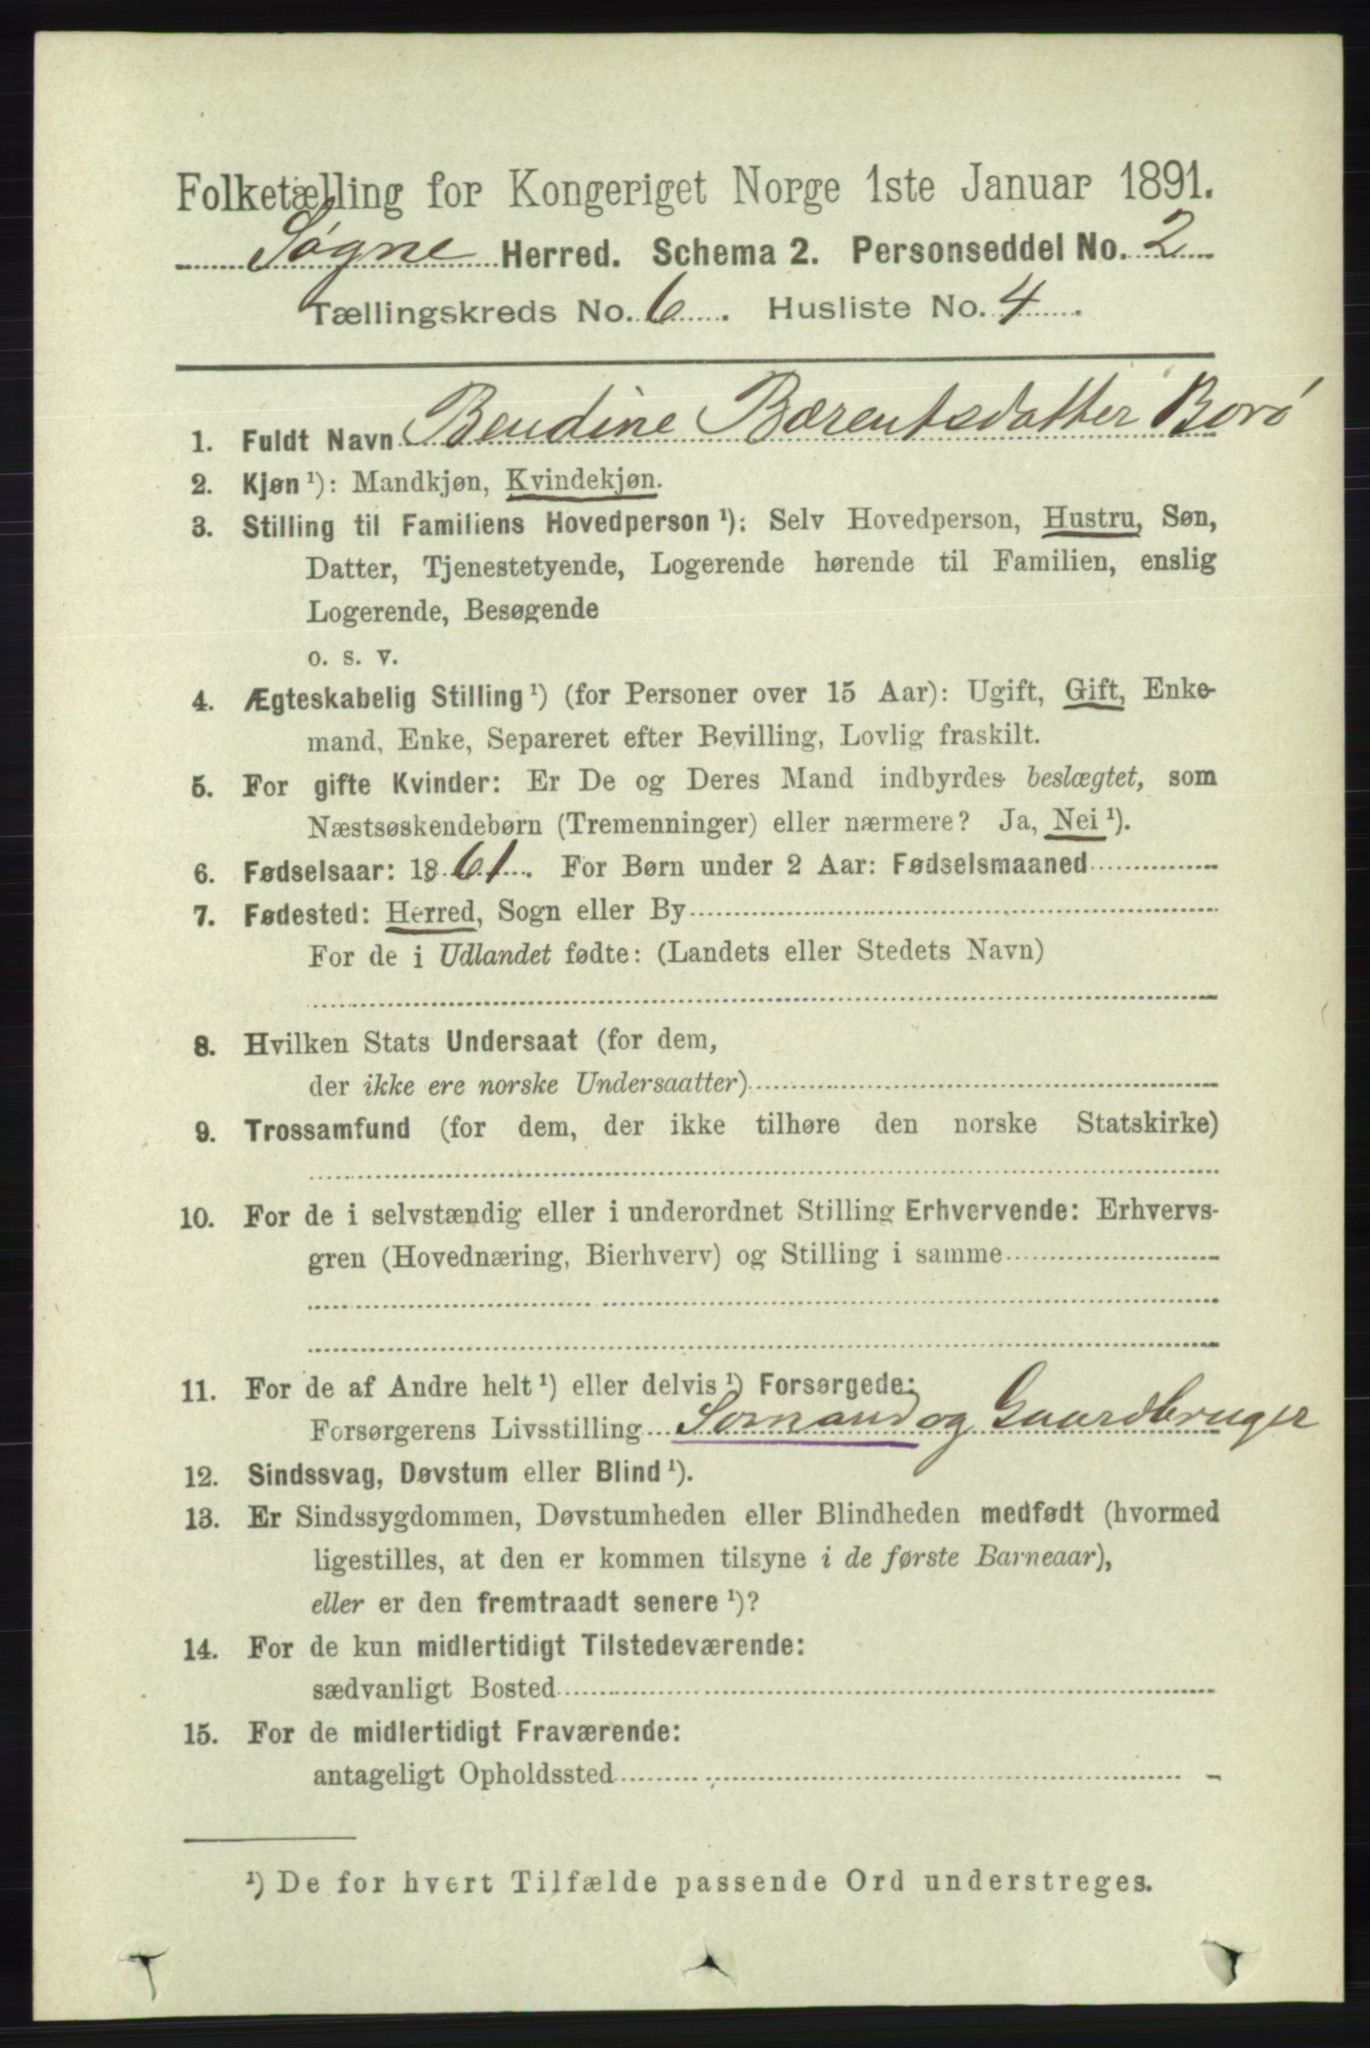 Folketælling for Kongeriget Norge 1ste Januar 1891.
Søgne Herred. Schema 2. Personseddel No. 2
Tællingskreds No. 6. Husliste No. 4.
1. Fuldt Navn Bendine Bærentsdatter Borø
2. Kjøn ¹): Mandkjøn, Kvindekjøn.
3. Stilling til Familiens Hovedperson ¹): Selv Hovedperson, Hustru, Søn,
Datter, Tjenestetyende, Logerende hørende til Familien, enslig
Logerende, Besøgende
o. s. v.
4. Ægteskabelig Stilling ¹) (for Personer over 15 Aar): Ugift, Gift, Enke-
mand, Enke, Separeret efter Bevilling, Lovlig fraskilt.
5. For gifte Kvinder: Er De og Deres Mand indbyrdes beslægtet, som
Næstsøskendebørn (Tremenninger) eller nærmere? Ja, Nei ¹).
6. Fødselsaar: 1861. For Børn under 2 Aar: Fødselsmaaned
7. Fødested: Herred, Sogn eller By
For de i Udlandet fødte: (Landets eller Stedets Navn)
8. Hvilken Stats Undersaat (for dem,
der ikke ere norske Undersaatter)
9. Trossamfund (for dem, der ikke tilhøre den norske Statskirke)
10. For de i selvstændig eller i underordnet Stilling Erhvervende: Erhvervs-
gren (Hovednæring, Bierhverv) og Stilling i samme
11. For de af Andre helt ¹) eller delvis ¹) Forsørgede:
Forsørgerens Livsstilling Sømand og Gaardbruger
12. Sindssvag, Døvstum eller Blind ¹).
13. Er Sindssygdommen, Døvstumheden eller Blindheden medfødt (hvormed
ligestilles, at den er kommen tilsyne i de første Barneaar),
eller er den fremtraadt senere ¹)?
14. For de kun midlertidigt Tilstedeværende:
sædvanligt Bosted
15. For de midlertidigt Fraværende:
antageligt Opholdssted
¹) De for hvert Tilfælde passende Ord understreges.